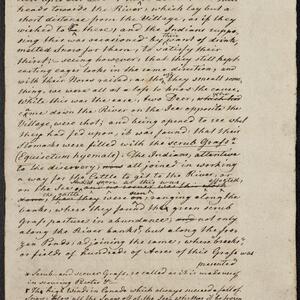 heads towards the River, which lay but a
short distance from the Village, as if they
wished to be there; and the Indians suppo-
sing this was occasioned by their want of drink,
melted Snow for them, to satisfy their
thirst; seeing however, that they still kept
casting eager looks in the same direction, and
with their Noses raised as tho' they smelt some-
thing, we were all at a loss to know the cause.
While this was the case, two Deer, which
came down the River on the Ice opposite the
Village, were shot; and being opened to see what
they had fed upon, it was found that their
Stomachs were filled with the scrub Grass*
(Equisetum hyemale). The Indians, attentive
to the discovery, all joined in working
a way for the Cattle to get to the River, or
on the Ice
they were seen ranging along the
banks, where they found the green scrub
Grass pasture in abundance; not only
along the River banks, but along the fro-
zen Ponds adjoining the same, where breaks
or fields of hundreds of Acres of this Grass was
presented
* Scrub and scower Grass, so called as it is made use of
in scouring Pewter &c.